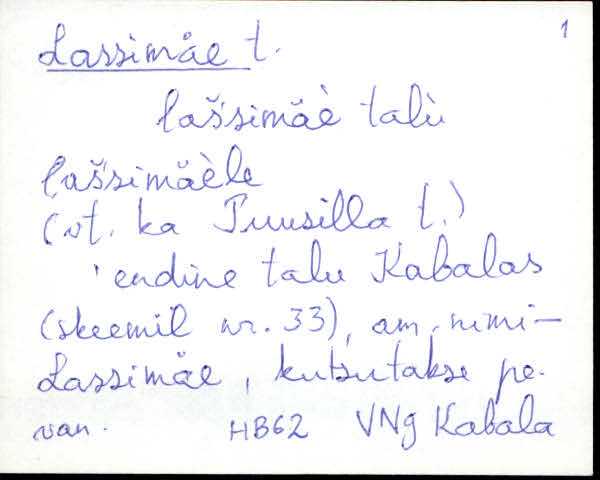 1
Lassimäe t.
lašsimäè talù
lašsimäèle
(vt. ka Puusilla t.)
'endine talu Kabalas
(skeemil nr. 33), am. nimi –
Lassimäe, kutsutakse pe-
van. HB62 VNg Kabala